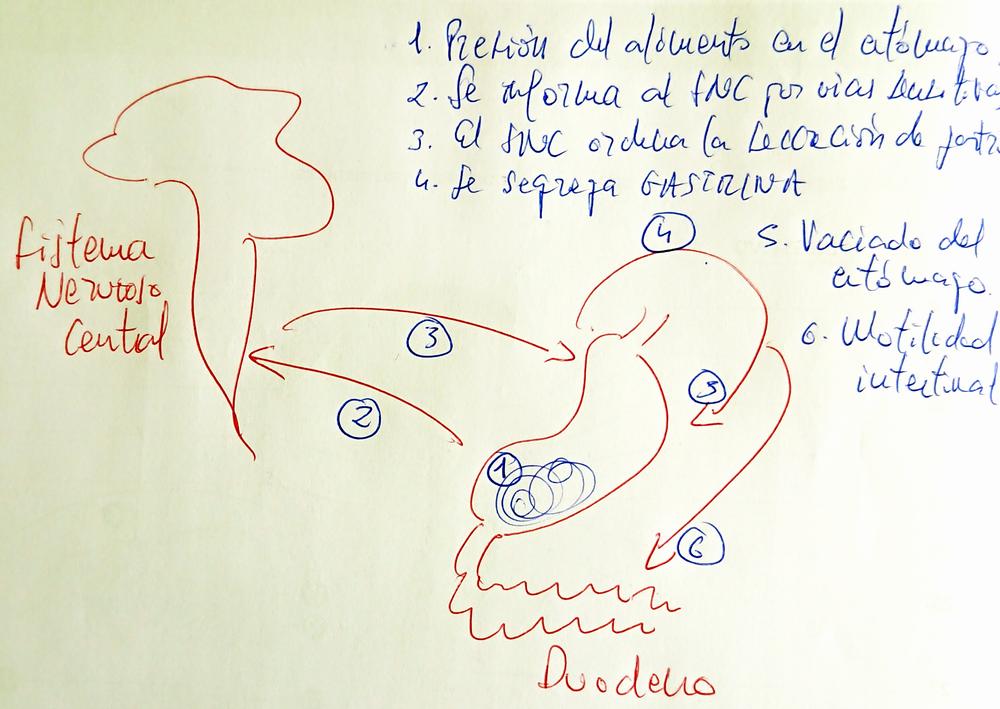 1. Presión del alimento en el estómago
2. Se informa al SNC por vías
3. El SNC ordena la secreción de
4. Se segrega GASTRINA
4
5. Vaciado del
estómago.
6. Motilidad
intestinal
Sistema
Nervioso
Central
3
2
5
1
6
Duodeno